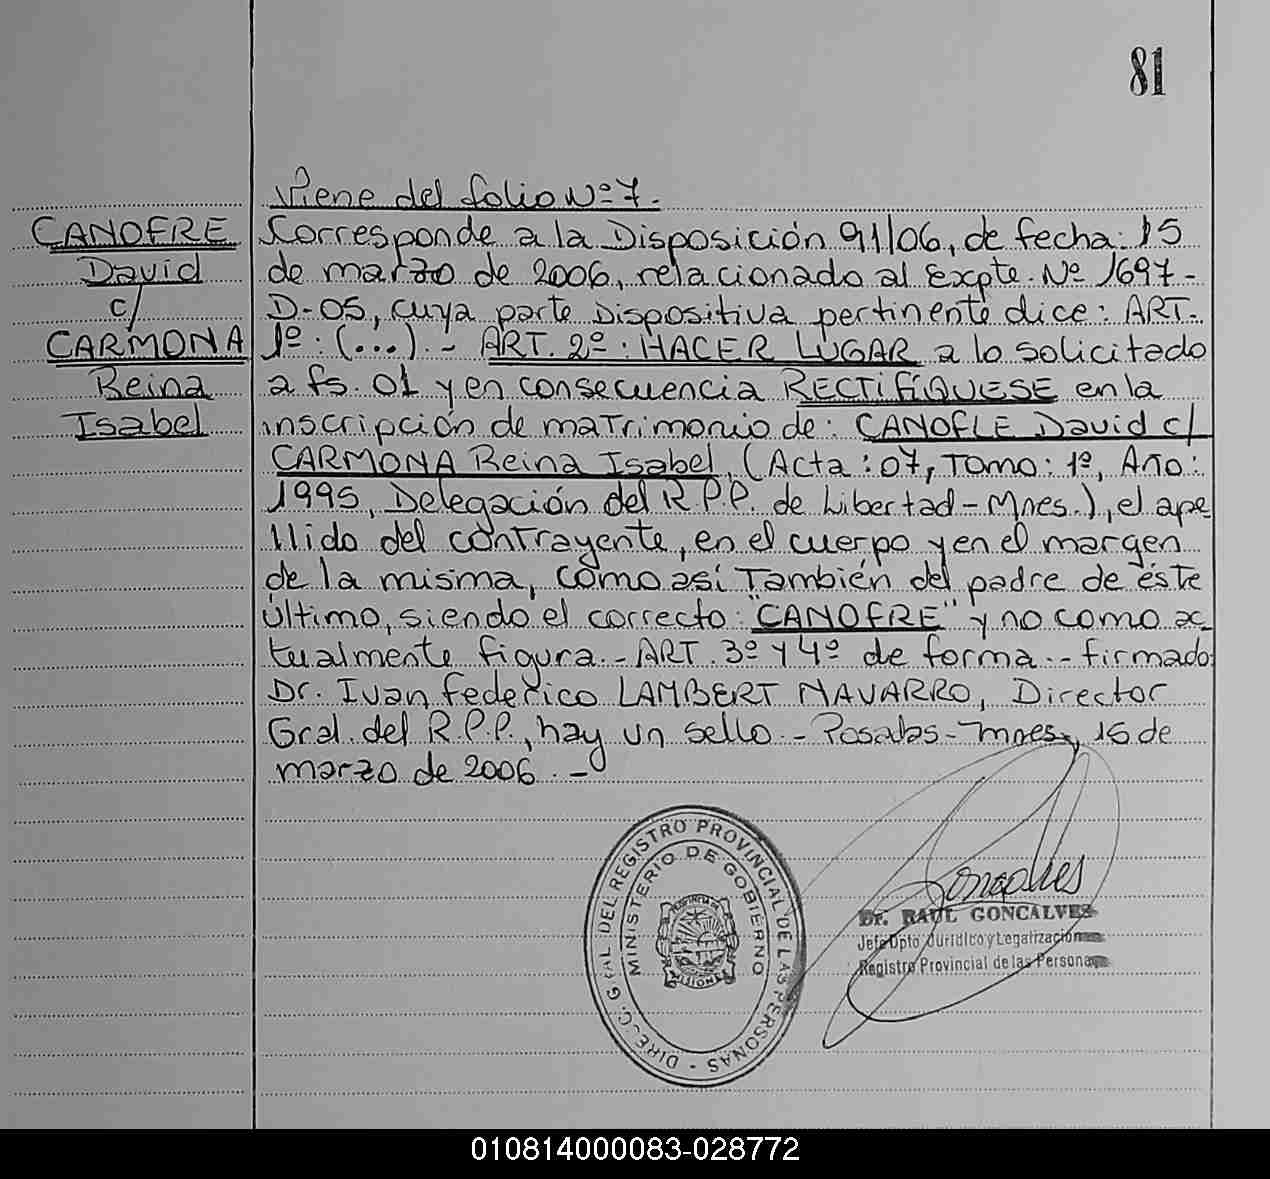 81
Viene del folio Nº 7.
CANOFRE
David
c/
CARMONA
Reina
Isabel
Corresponde a la Disposición 91/06, de fecha: 15
de marzo de 2006, relacionado al Expte. Nº 1697-
D-05, cuya parte Dispositiva pertinente dice: ART.
1º: (...).- ART. 2º: HACER LUGAR a lo solicitado
a fs. 01 y en consecuencia RECTIFÍQUESE en la
inscripción de matrimonio de: CANOFLE David c/
CARMONA Reina Isabel, (Acta: 07, Tomo: 1º, Año:
1995, Delegación del R.P.P. de Libertad-Mnes.), el ape
llido del contrayente, en el cuerpo y en el margen
de la misma, como así también del padre de éste
último, siendo el correcto "CANOFRE" y no como ac
tualmente figura.- ART. 3º y 4º de forma.- firmado:
Dr. Ivan Federico LAMBERT NAVARRO, Director
Gral. del R.P.P., hay un sello.- Posadas-Mnes, 16 de
marzo de 2006.-
DIREC. GRAL. DEL REGISTRO PROVINCIAL DE LAS PERSONAS -
MINISTERIO DE GOBIERNO
PROVINCIA DE
MISIONES
Goncalves
Dr. RAUL GONCALVES
Jefe Dpto Jurídico y Legalización
Registro Provincial de las Personas
010814000083-028772